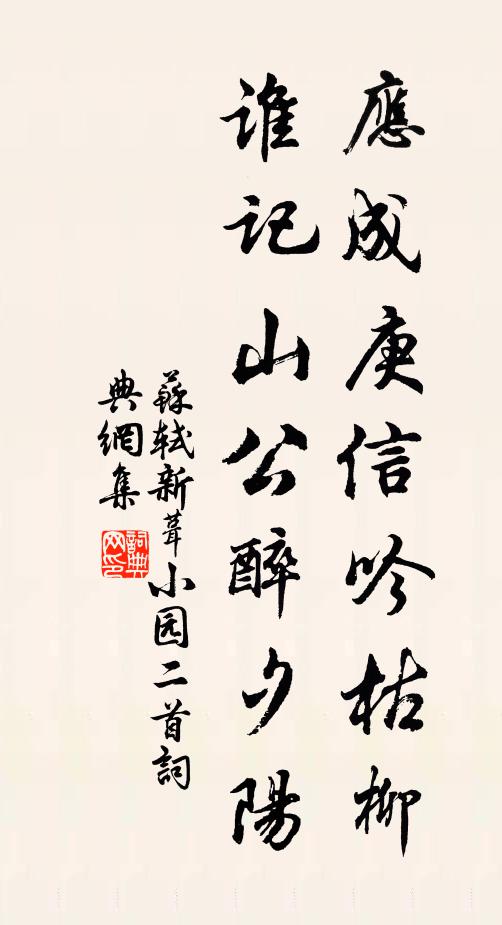 應成庚信吟枯柳
谁记山公醉夕陽
蘇轼新葺小园二首詞
典網集
詞典
网印